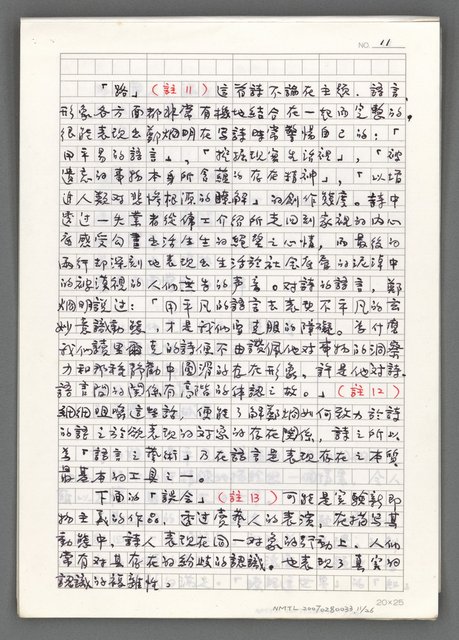 NO. 11
「路」（註11）這首詩不論在主題、語言、
形象各方面都非常有機地結合在一起而完整的，
很能表現出鄭烱明在寫詩時常警惕自己的：「
用平易的語言」，「挖掘現實生活裡」，「被
遺忘的事物本身所含蘊的存在精神」，「以增
進人類對悲慘根源的瞭解」的創作態度。詩中
透過一失業者從傭工介紹所走回到家裡的內心
有感受勾畫生活生生的絕望之心情，而最後的
兩行却深刻地表現出生活於社會底層的泥淖中
的被漠視的人們無告的聲音。對詩的語言，鄭
烱明說過：「用平凡的語言去表現不平凡的玄
妙意識動態，才是我們需克服的障礙。為什麼
我們讀里爾克的詩便不由讚佩他對事物的洞察
力和那種野動中圓滑的存在形象，許是他對詩
語言間的關係有高階的体認之故。」（註12）
細細咀嚼這些話，便能了解鄭烱明如何致力於詩
的語言於欲表現的對象的存在關係，詩之所以
為「語言之藝術」乃在語言是表現存在之本質
最基本的工具之一。
下面的「誤會」（註13）可能是實驗新即
物主義的作品，透過賣藝人的表演，在描寫其
動態中，詩人表現在同一對象的行動上，人們
常有對其存在的紛歧的認識。也表現了真實的
認識的複雜性。
20×25
NMTL 20070280033.11/26